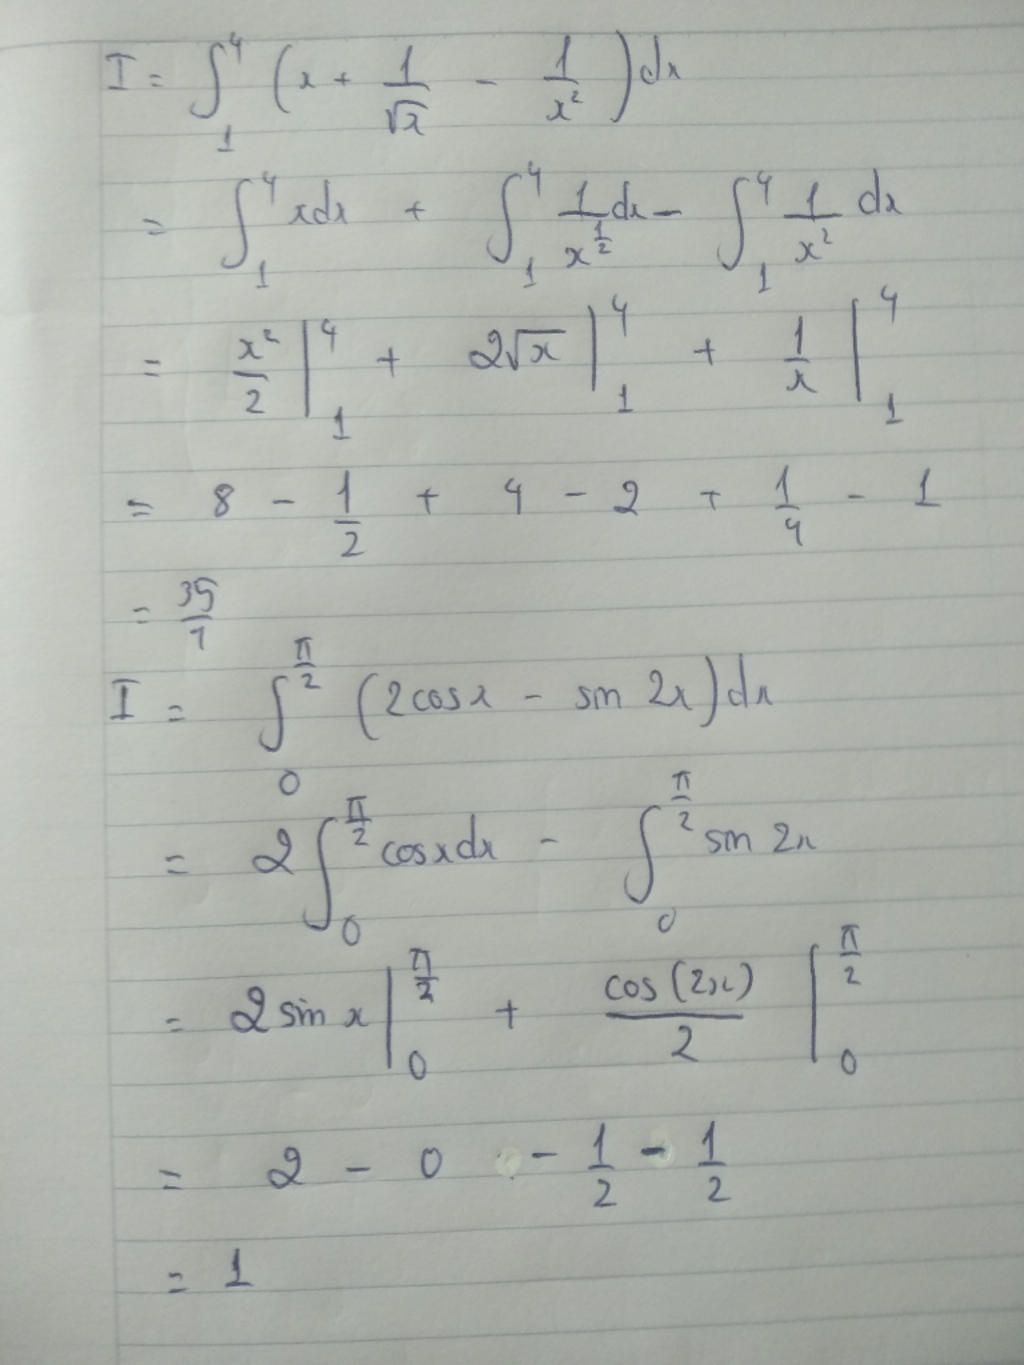 I = ∫₁⁴ (x + 1/√x − 1/x²) dx
= ∫₁⁴ xdx + ∫₁⁴ 1/x^(1/2) dx − ∫₁⁴ 1/x² dx
= x²/2 |₁⁴ + 2√x |₁⁴ + 1/x |₁⁴
= 8 − 1/2 + 4 − 2 + 1/4 − 1
= 35/7
I = ∫₀^(π/2) (2cosx − sin 2x) dx
= 2∫₀^(π/2) cosxdx − ∫₀^(π/2) sin 2x
= 2 sin x |₀^(π/2) + cos(2x)/2 |₀^(π/2)
= 2 − 0 − 1/2 − 1/2
= 1